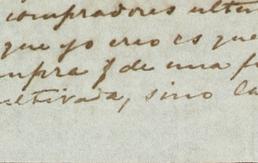 compradores ulte
que yo creo es que
mpra y de una f
ultivada, sino la